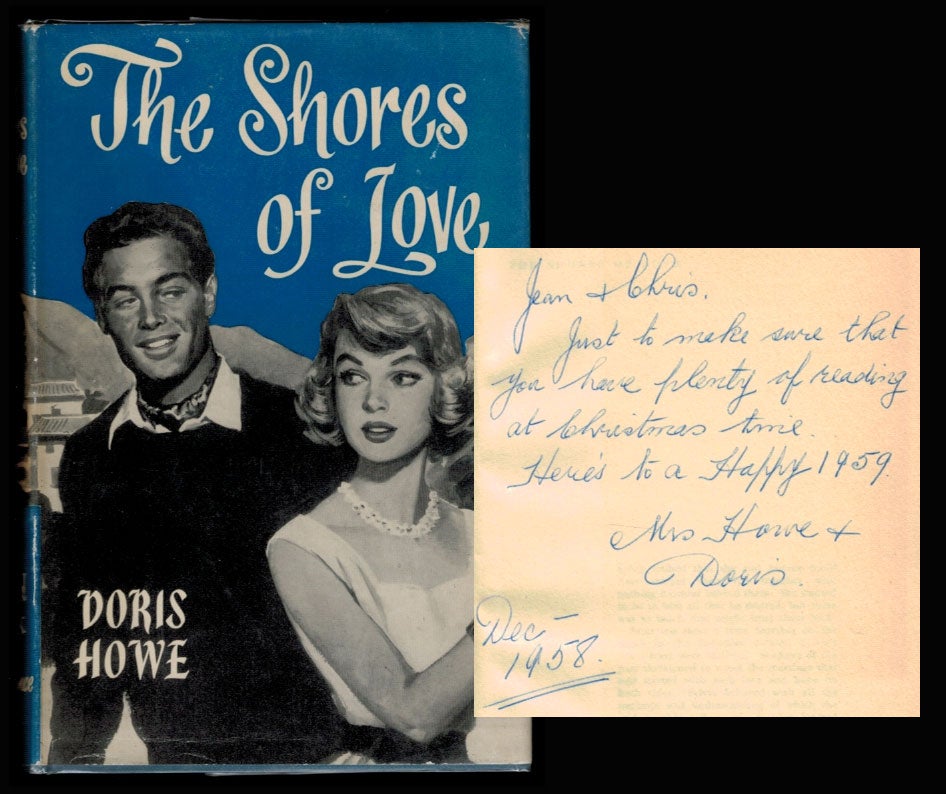 The Shores
of Love
DORIS
HOWE
Jean + Chris.
Just to make sure that
you have plenty of reading
at Christmas time.
Here's to a Happy 1959.
Mrs Howe +
Doris.
Dec -
1958.